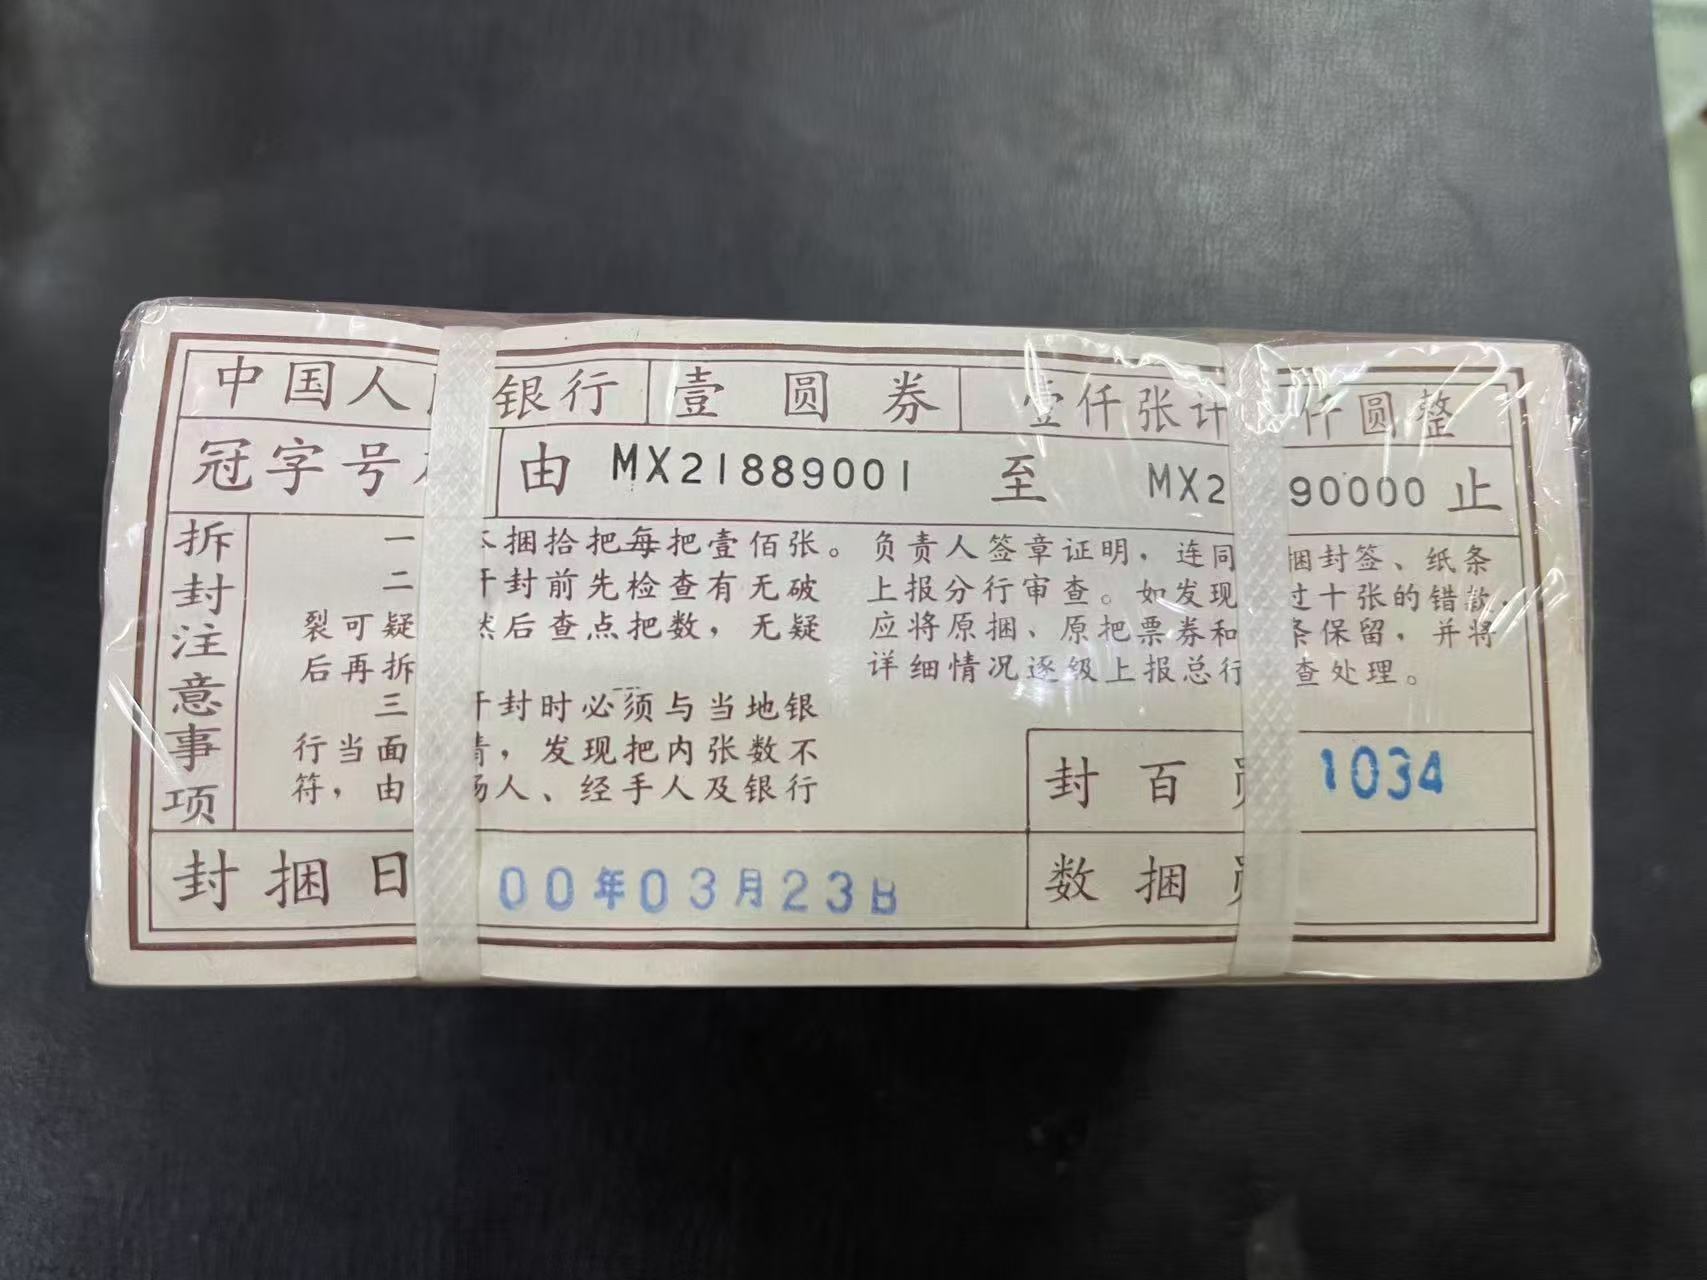 中国人 银行 壹圆券 壹仟张计 仟圆整
冠字号 由 MX21889001 至 MX2 90000 止
拆封注意事项
一 捆拾把每把壹佰张。
二 开封前先检查有无破
裂可疑 然后查点把数，无疑
后再拆
三 开封时必须与当地银
行当面 清，发现把内张数不
符，由 场人、经手人及银行
负责人签章证明，连同 捆封签、纸条
上报分行审查。如发现 过十张的错款，
应将原捆、原把票券和 条保留，并将
详细情况逐级上报总行 查处理。
封百 1034
封捆日 00年03月23日
数捆